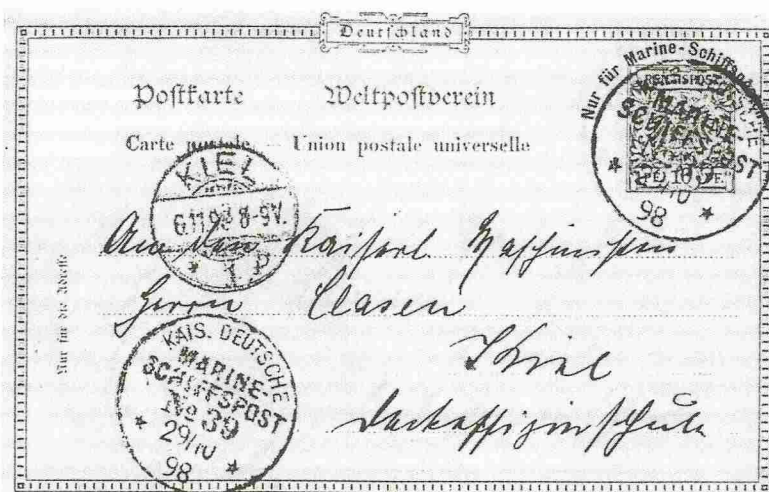 Deutschland
Postkarte Weltpostverein
Carte postale Union postale universelle
Nur für Marine-Schiffspost
REICHSPOST
MARINE
SCHIFFSPOST
98
KIEL
6.11.98.8-9V.
* 1 P
An den Kaiserl. Maschinisten
Herrn Clasen
Kiel
Deckoffizierschule
Nur für die Adresse
KAIS. DEUTSCHE
MARINE-
SCHIFFSPOST
No 39
29/10
98